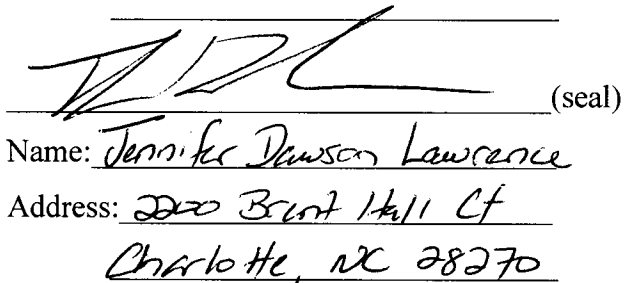 (seal)
Name: Jennifer Dawson Lawrence
Address: 2200 Brent Hall Ct
Charlotte, NC 28270